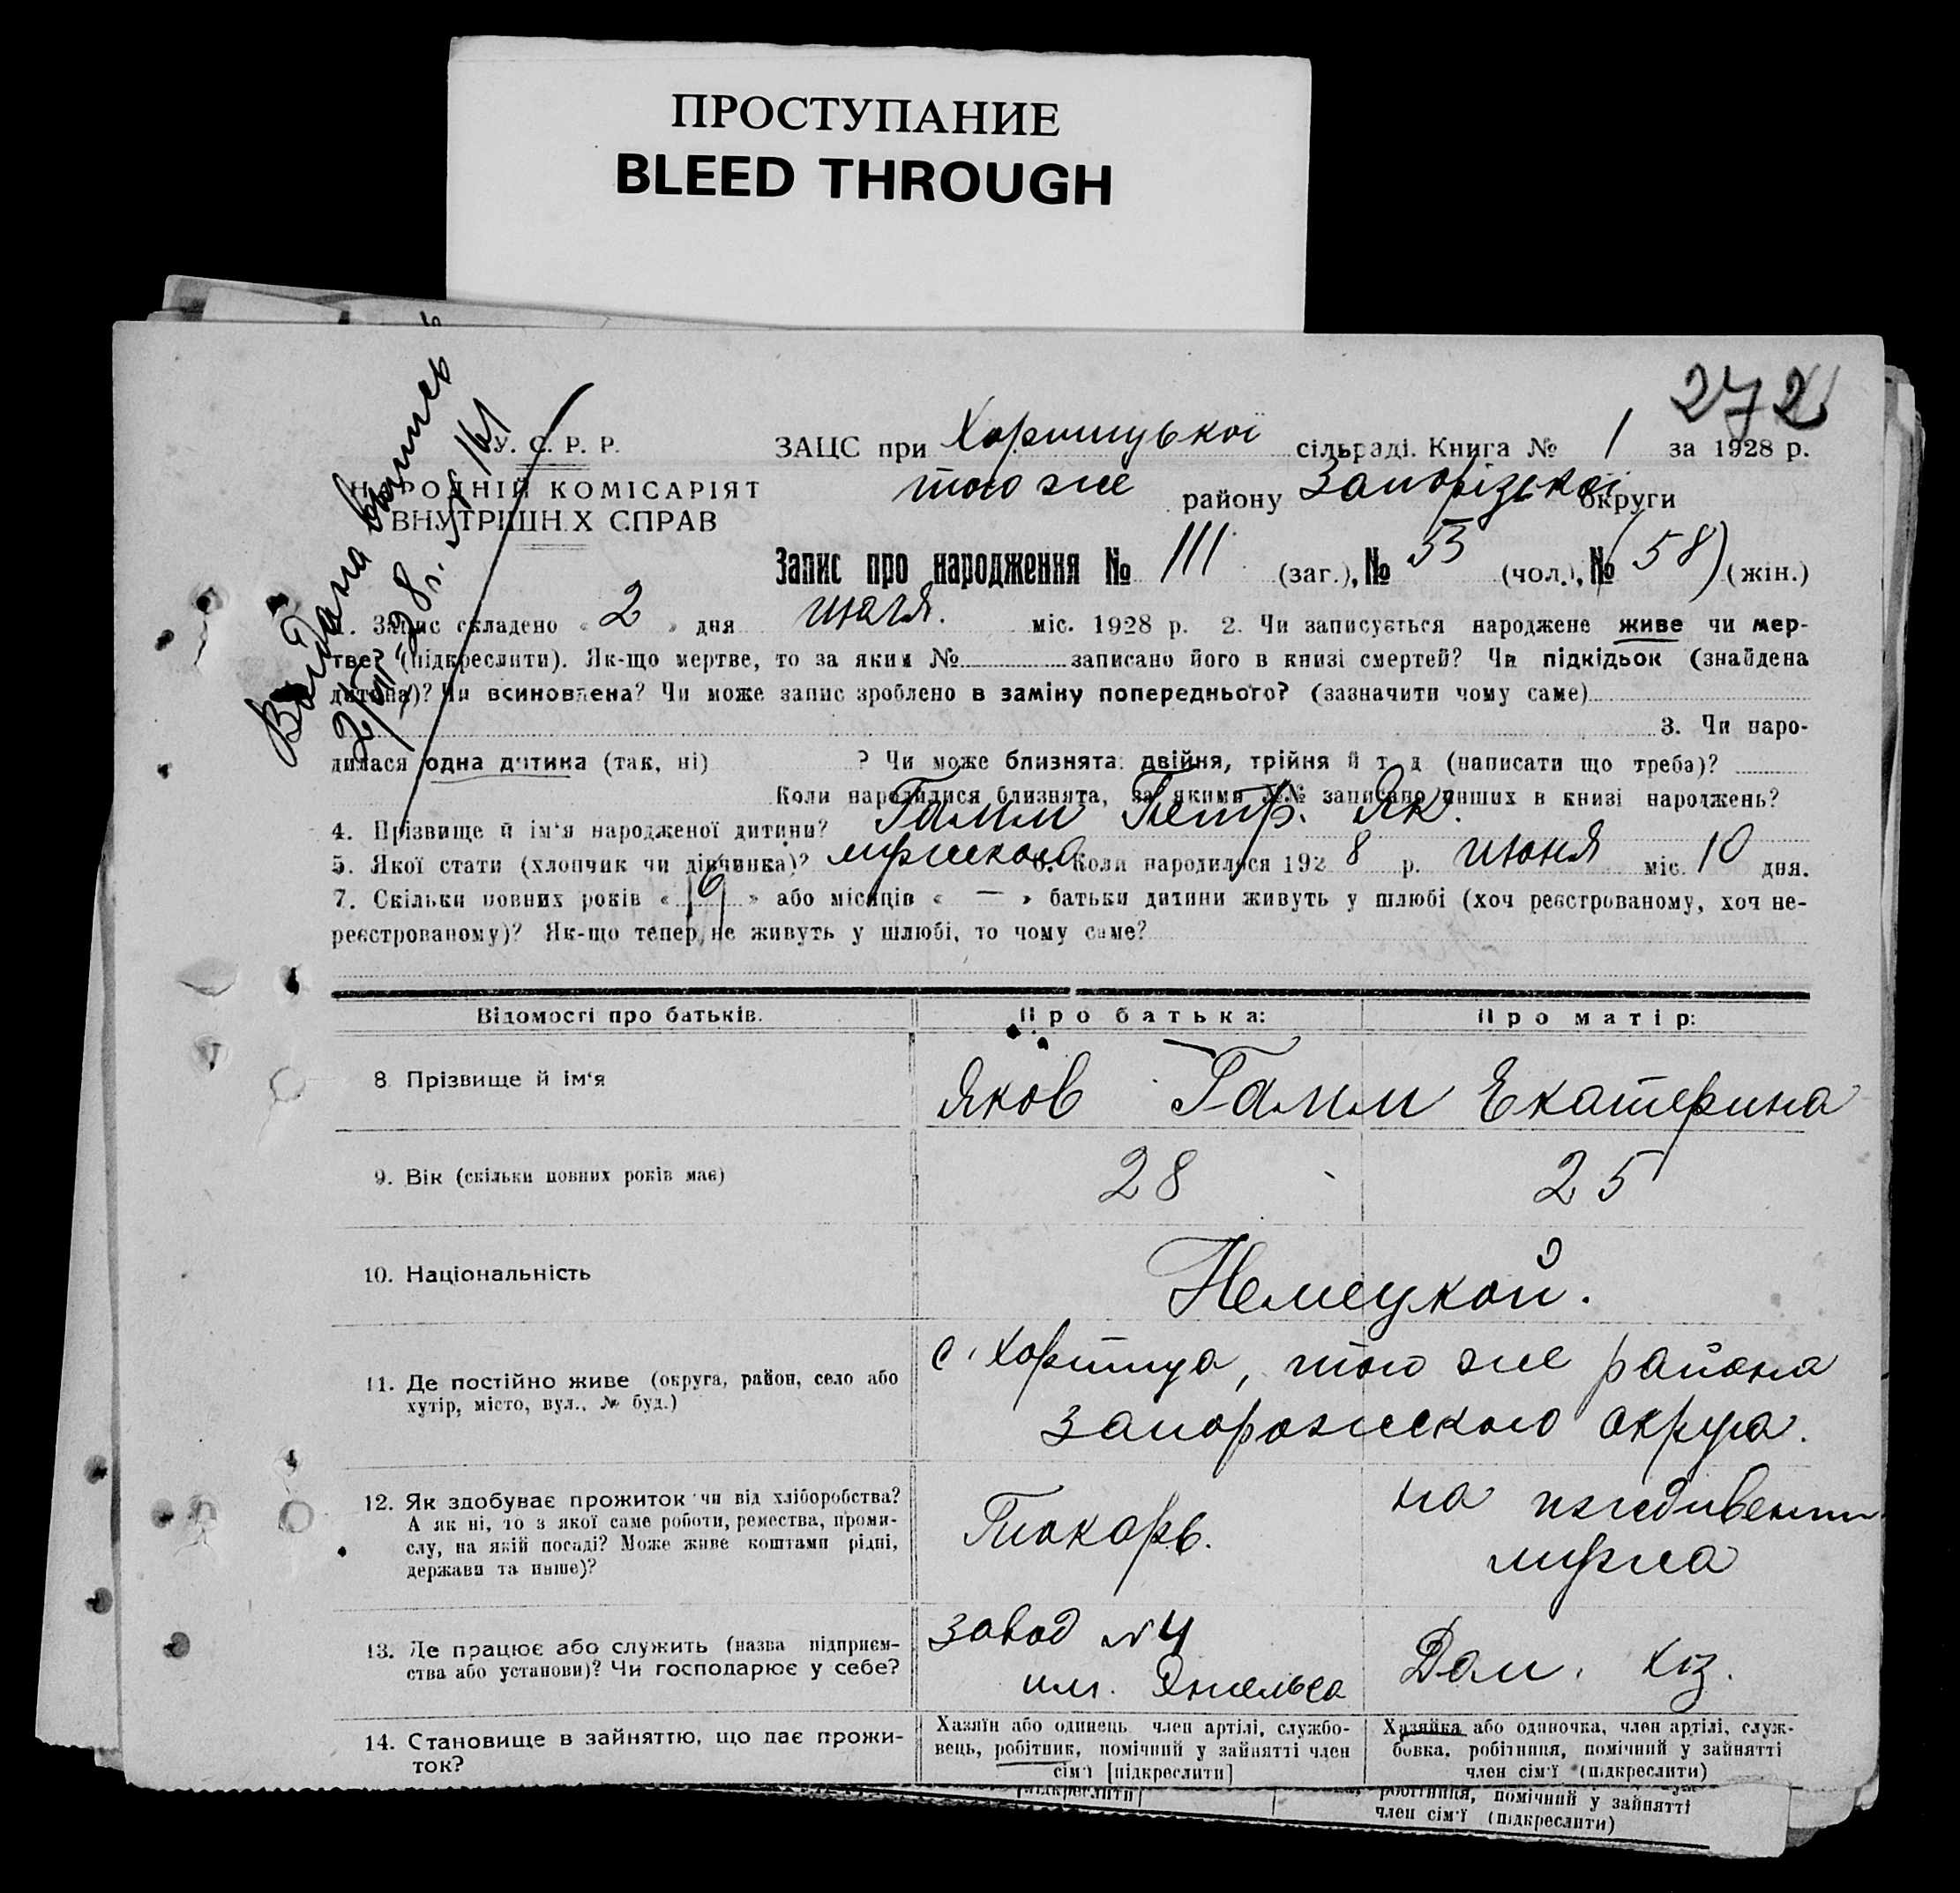 ПРОСТУПАНИЕ
BLEED THROUGH
272
Видана выпись
2/VII 28 г. № 161
У. С. Р. Р.
НАРОДНІЙ КОМІСАРІЯТ
ВНУТРІШНІХ СПРАВ
ЗАЦС при Хортицької сільраді. Книга № 1 за 1928 р.
того же району Запорізької округи
Запис про народження № 111 (заг.), № 53 (чол.), № (58) (жін.)
1. Запис складено « 2 » дня июля. міс. 1928 р. 2. Чи записується народжене живе чи мер-
тве? (підкреслити). Як-що мертве, то за яким № записано його в книзі смертей? Чи підкідьок (знайдена
дитина)? Чи всиновлена? Чи може запис зроблено в заміну попереднього? (зазначити чому саме)
3. Чи наро-
дилася одна дитина (так, ні) ? Чи може близнята: двійня, трійня й т. д. (написати що треба)?
Коли народилися близнята, за якими №№ записано инших в книзі народжень?
4. Прізвище й ім'я народженої дитини? Гамм Петр. Як.
5. Якої стати (хлопчик чи дівчинка)? мужского 6. Коли народилася 1928 р. июня міс. 10 дня.
7. Скільки повних років « » або місяців « — » батьки дитини живуть у шлюбі (хоч реєстрованому, хоч не-
реєстрованому)? Як-що тепер не живуть у шлюбі, то чому саме?
Відомості про батьків. Про батька: Про матір:
8. Прізвище й ім'я Яков Гамм Екатерина
9. Вік (скільки повних років має) 28 25
10. Національність Немецкой.
11. Де постійно живе (округа, район, село або
хутір, місто, вул., № буд.)
с. Хортица, того же района
Запорожского округа.
12. Як здобуває прожиток чи від хліборобства?
А як ні, то з якої саме роботи, ремества, проми-
слу, на якій посаді? Може живе коштами рідні,
держави та инше)?
Токарь.
на иждивении
мужа
13. Де працює або служить (назва підприєм-
ства або установи)? Чи господарює у себе?
завод №4
им. Энгельса
Дом. хоз.
14. Становище в зайняттю, що дає прожи-
ток?
Хазяїн або одинець, член артілі, службо-
вець, робітник, помічний у зайнятті член
сім'ї [підкреслити]
Хазяйка або одиночка, член артілі, служ-
бовка, робітниця, помічний у зайнятті
член сім'ї (підкреслити)
[підкреслити]
робітниця, помічний у зайнятті
член сім'ї (підкреслити)